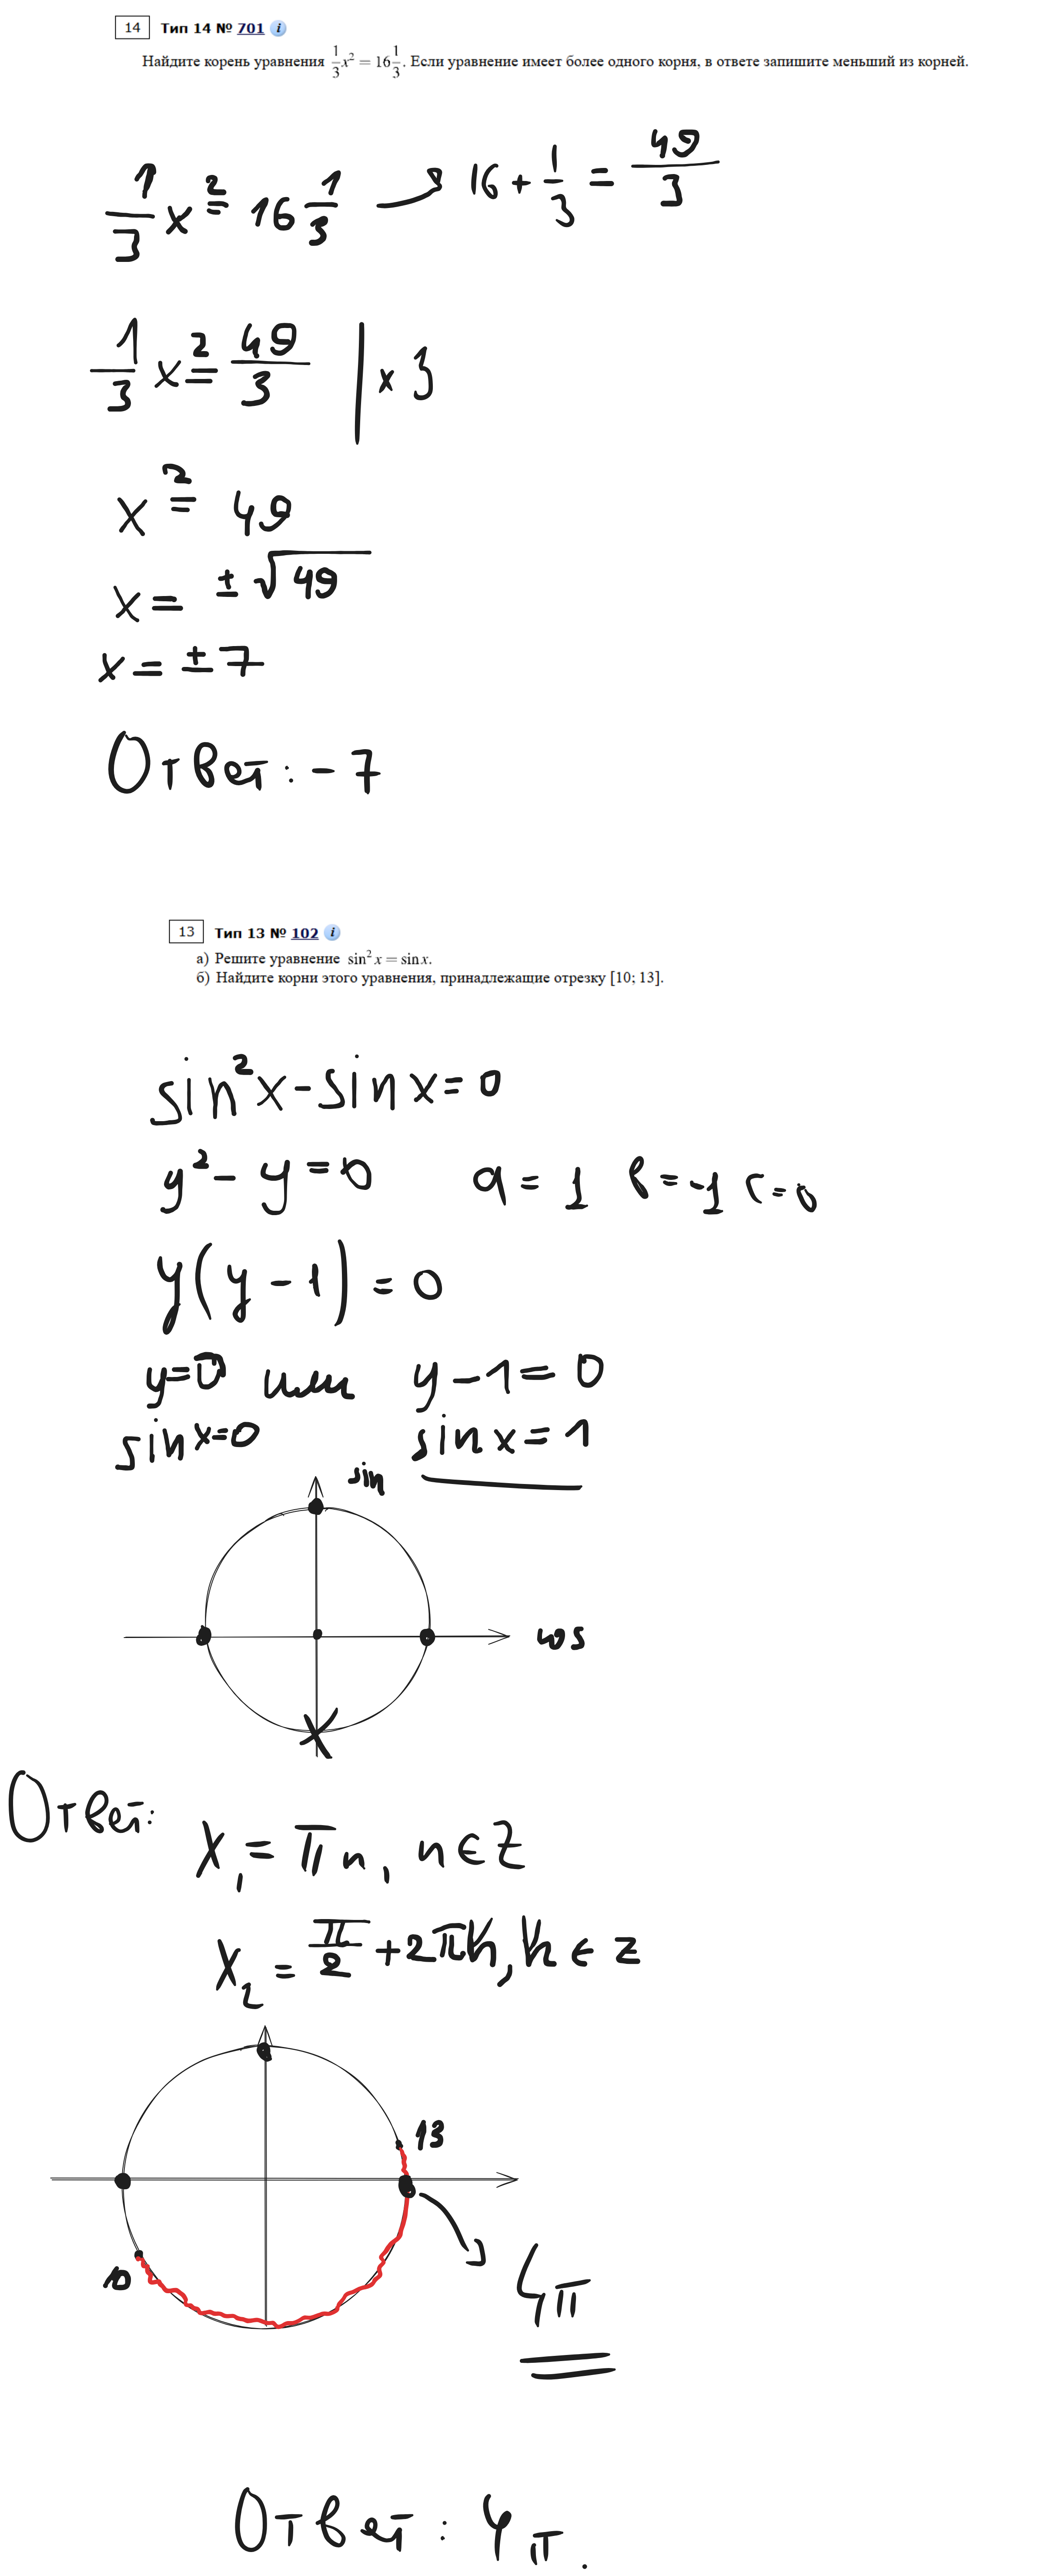 14 Тип 14 № 701 i
Найдите корень уравнения 1/3 x² = 16 1/3. Если уравнение имеет более одного корня, в ответе запишите меньший из корней.
1/3 x² = 16 1/3 → 16 + 1/3 = 49/3
1/3 x² = 49/3 | × 3
x² = 49
x = ± √49
x = ± 7
Ответ: - 7
13 Тип 13 № 102 i
а) Решите уравнение sin² x = sin x.
б) Найдите корни этого уравнения, принадлежащие отрезку [10; 13].
sin² x - sin x = 0
y² - y = 0 a = 1 b = -1 c = 0
y(y - 1) = 0
y = 0 или y - 1 = 0
sin x = 0 sin x = 1
sin
cos
Ответ:
x₁ = πn, n ∈ Z
x₂ = π/2 + 2πk, k ∈ z
13
10
4π
Ответ: 4π.